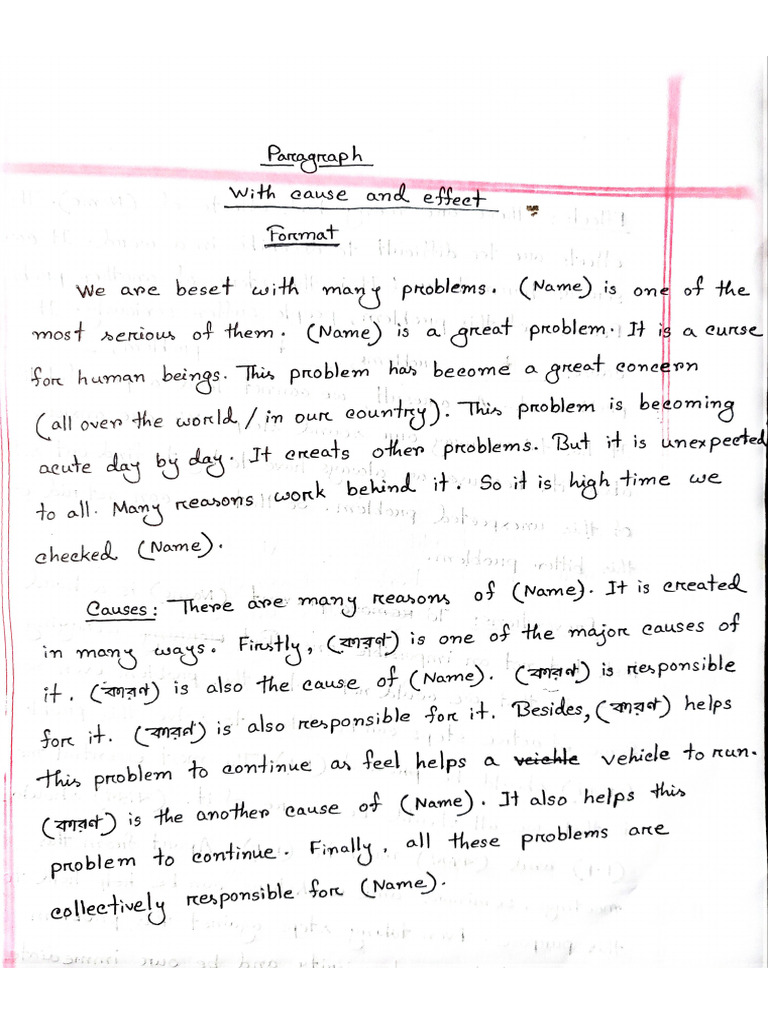 Paragraph
With cause and effect
Format
We are beset with many problems. (Name) is one of the
most serious of them. (Name) is a great problem. It is a curse
for human beings. This problem has become a great concern
(all over the world / in our country). This problem is becoming
acute day by day. It creats other problems. But it is unexpected
to all. Many reasons work behind it. So it is high time we
checked (Name).
Causes: There are many reasons of (Name). It is created
in many ways. Firstly, (কারণ) is one of the major causes of
it. (কারণ) is also the cause of (Name). (কারণ) is responsible
for it. (কারণ) is also responsible for it. Besides, (কারণ) helps
this problem to continue as feel helps a veichle vehicle to run.
(কারণ) is the another cause of (Name). It also helps this
problem to continue. Finally, all these problems are
collectively responsible for (Name).